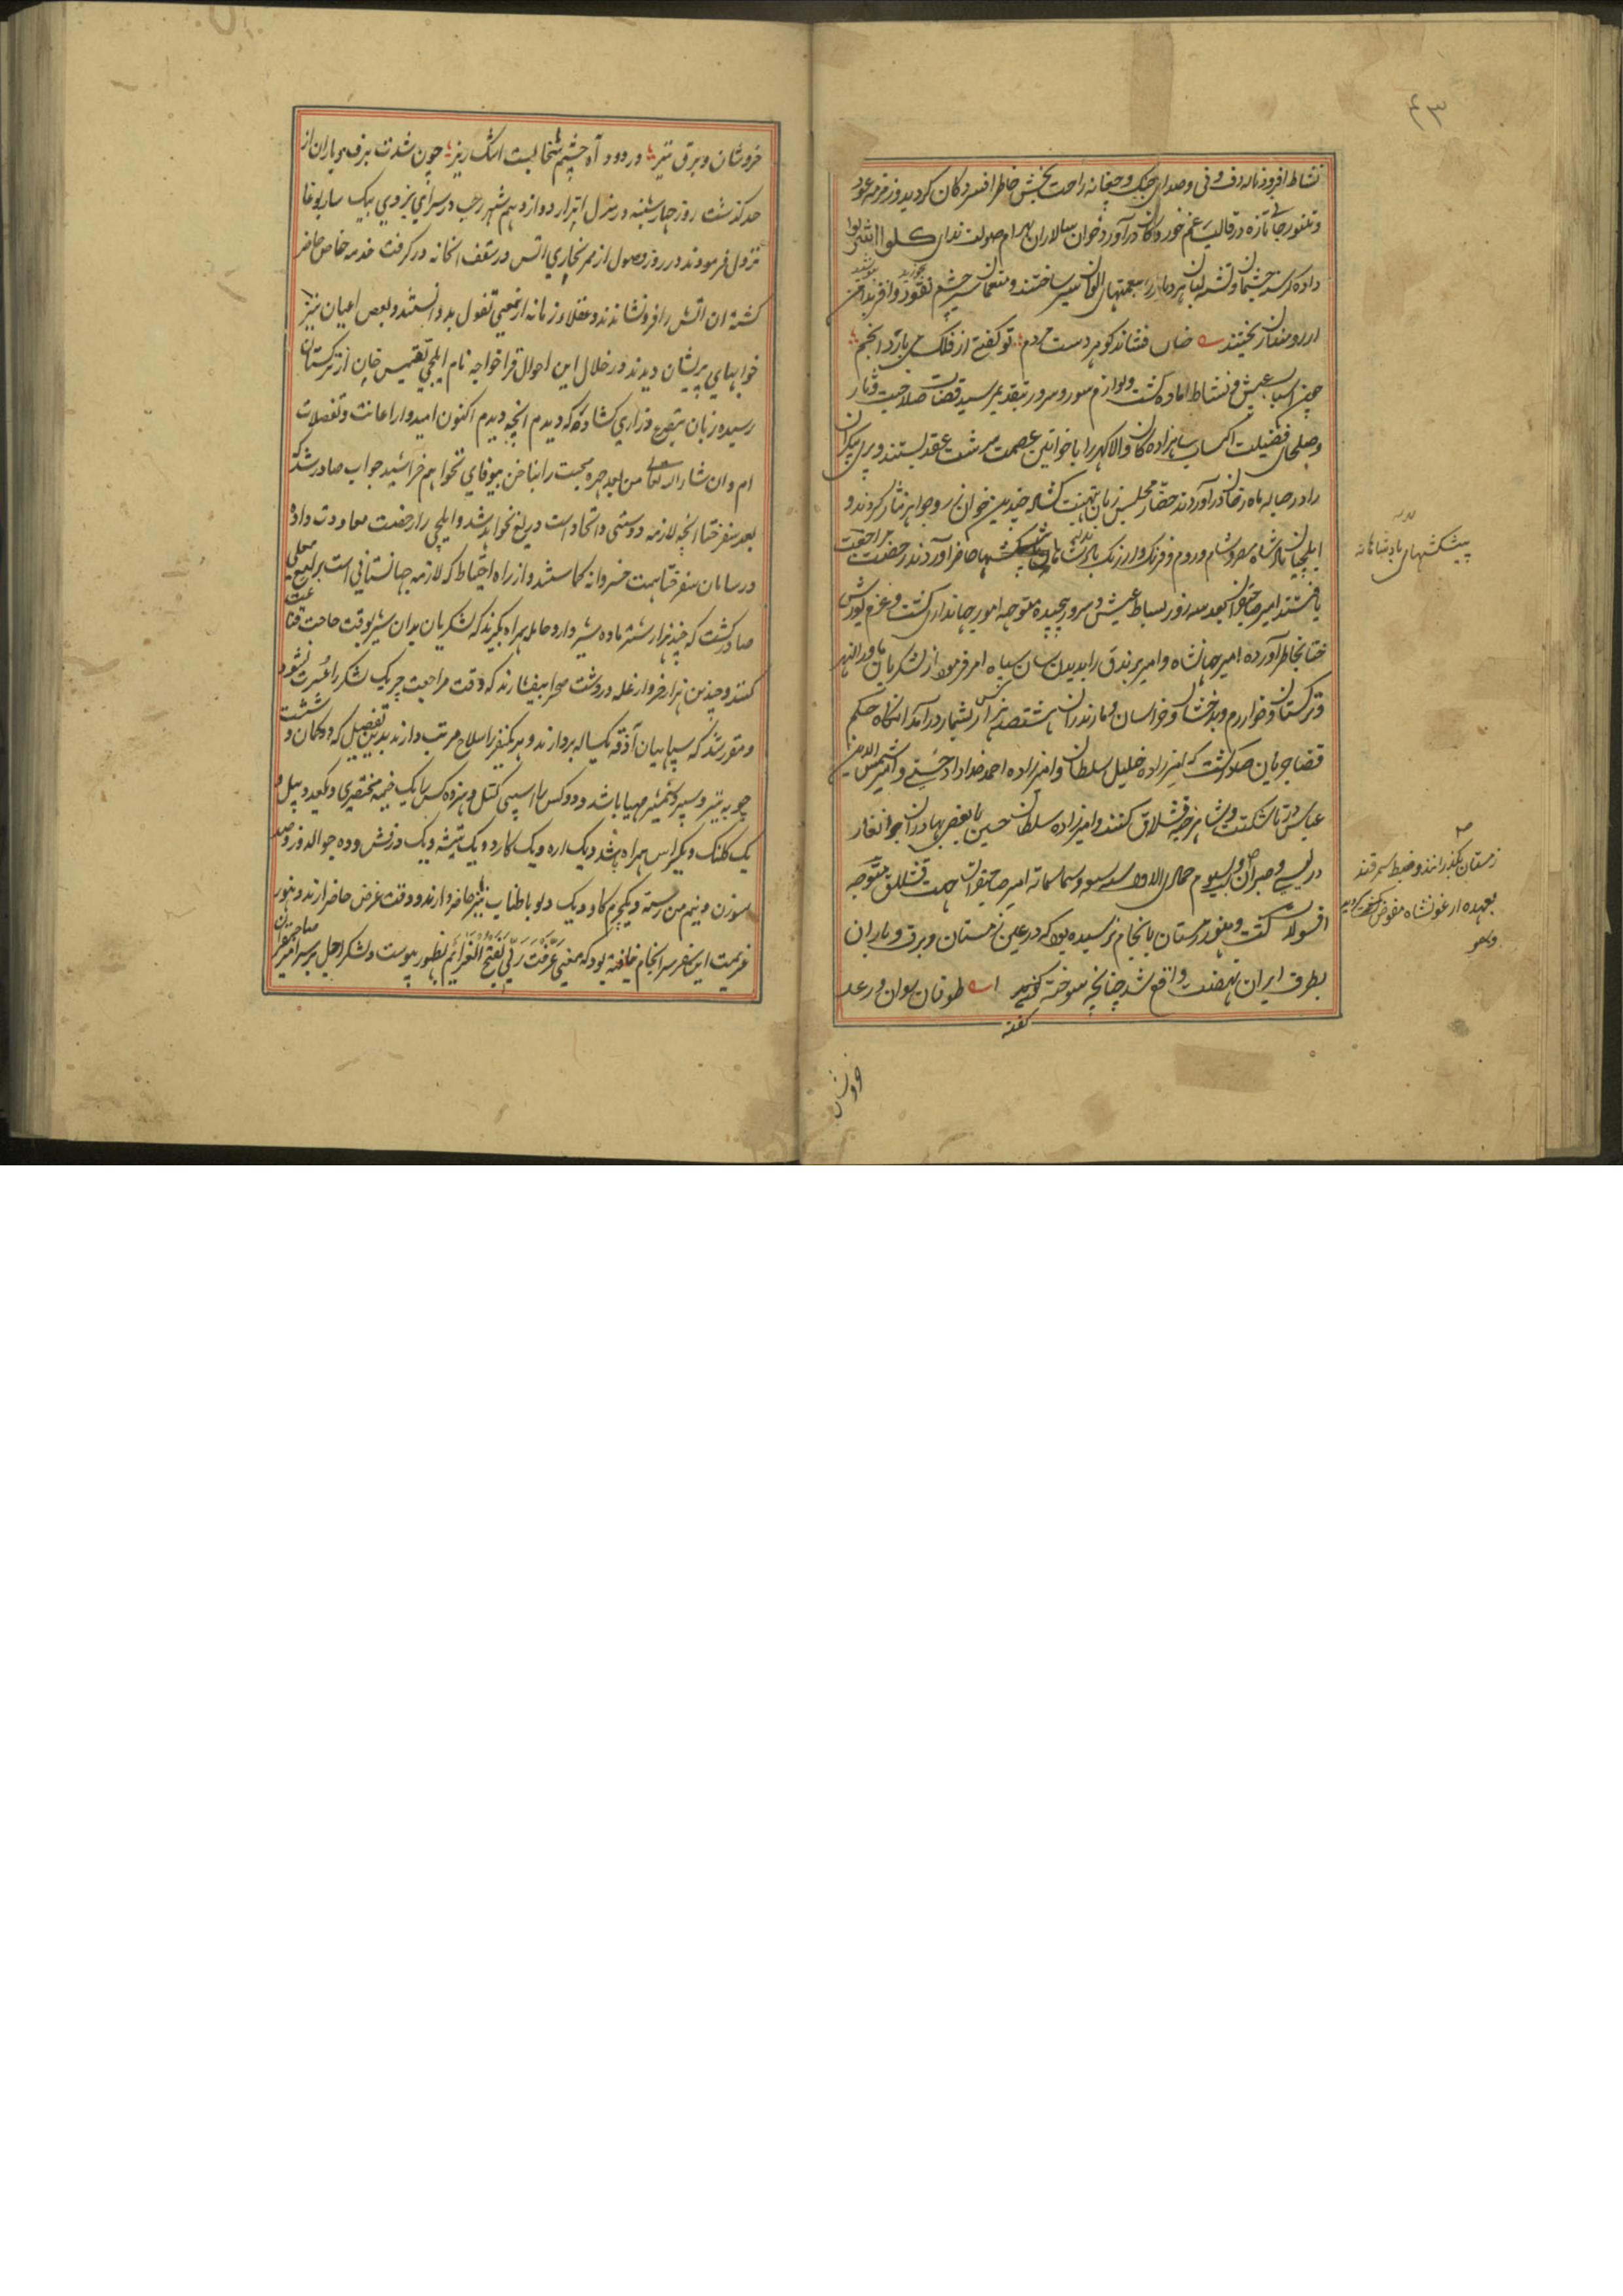 ۴۳
نشاط افروز ناله دف و نی و صدای چنک و چغانه راحت بخش خاطر افسردکان کردید و زمزمه عود
و تنبور جانی تازه در قالب غم خوردکان درآورد و خوان سالاران بهرام صولت ندای کلوا اشربوا
داده کرسنه چشمان و تشنه لبان هر دیار را بنعمتهای الوان سیر ساختند و منعمان سیر چشم نقود وافر
ریختند چنان فشاند کوهر دست مردم تو کفتی از فلک می بارد انجم
چون اسباب عیش و نشاط اماده کشت و لوازم سور و سرور بتقدیم رسید قضات صلاحیت دثار
و صلحای فضیلت اکتساب شاهزاده کان والا کهر را با خواتین عصمت سرشت عقد بستند و پری پیکران
را در حباله ماه رخان درآوردند حضار مجلس زبان بتهنیت کشاده چندین خوان زر و جواهر نثار کردند و
ایلچیان پادشاه مصر و شام و روم و فرنک و ارزنک پیشکشها حاضر آوردند رخصت مراجعت
پیشکشهای پادشاهانه
یافتند امیر صاحبقران بعد سه روز بساط عیش و سرور پیچیده متوجه امور جهانداری کشت و عزم یورش
ختا بخاطر آورده امیر جهانشاه و امیر برندق را بدیدن سان سپاه امر فرمود از لشکریان ماوراالنهر
و ترکستان و خوارزم و بدخشان و خراسان و مازندران هشتصد هزار کس بشمار درآمد انکاه حکم
قضا جریان صادر کشت که امیرزاده خلیل سلطان و امیرزاده احمد خداداد حسینی و امیر شمس الدین
عباس در تاشکنت و شاهرخیه قشلاق کنند و امیرزاده سلطان حسین با بعضی بهادران جوانغار
زمستان بکذرانند و ضبط سمرقند
در یسی و صبران و بیست و سیوم جمادی الاولی سنه سبع و ثمانمائه امیر صاحبقران بجهت قشلاق متوجه
بعهده ارغونشاه مفوض کشت
اقسولات کشت و هنوز زمستان بانجام نرسیده بود که در عین زمستان و برق و باران
بطرف ایران نهضت واقع شد چنانچه سوخته کوید طوفان روان و رعد
کفته
خروشان
خروشان و برق تیز در دود آه چشم سحابست اشک ریز چون شدت برف و باران از
حد کذشت روز چارشنبه در منزل اترار دوازدهم شهر رجب در سرای بیردی بیک ساربوغا
نزول فرمودند در روز وصول از ممر بخاری اتش در سقف انخانه در کرفت خدمه خاص حاضر
کشته ان اتش را فرو نشاندند و عقلاء زمانه ازمعنی تفول بد دانستند و بعض اعیان نیز
خوابهای پریشان دیدند در خلال این احوال قراخواجه نام ایلچی تقتمیس خان از ترکستان
رسیده زبان بتضرع و زاری کشاد که دیدم انچه دیدم اکنون امیدوار اعانت و تفضلات
ام و ان شاء الله تعالی من بعد چهره محبت را بناخن بیوفایی نخواهم خراشید جواب صادر شد که
بعد سفر ختا انچه لازمه دوستی و اتحاد است دریغ نخواهد شد و ایلچی را رخصت معاودت داده
در سامان سفر ختا همت خسروانه کماشتند و از راه احتیاط که لازمه جهانستانی است یرلیغ معلی
صادر کشت که چند هزار شتر ماده شیردار و حامله همراه بکیرند که لشکریان بدان شیر بوقت حاجت قناعت
کنند و چندین هزار خروار غله در دشت و صحرا بیفشارند که وقت مراجعت چریک لشکر را عسرت نشود
و مقرر شد که سپاهیان آذقه یکساله بردارند و هر یکنفر اسلاح مرتب دارند بدین تفصیل که دو کمان و شصت
چوبه تیر و سپر و شمشیر مهیا باشد و دو کس را اسپی کتل و هر ده کس را یک خیمه مختصری و یکعدد بیل و
یک کلنک و یکراس همراه باشد و یک اره و یک کارد و یک تیشه و یک درفش و ده جوالدوز و صد
سوزن و نیم من رسته و یکچرم کاو و یک دلو با طناب نیز حاضر دارند و وقت عرض حاضر ارند و هنوز
عزیمت این سفر سرانجام نیافته بود که معنی عرفت ربی بفتح العزائم بظهور پیوست و لشکر اجل بر سر امیر صاحبقران